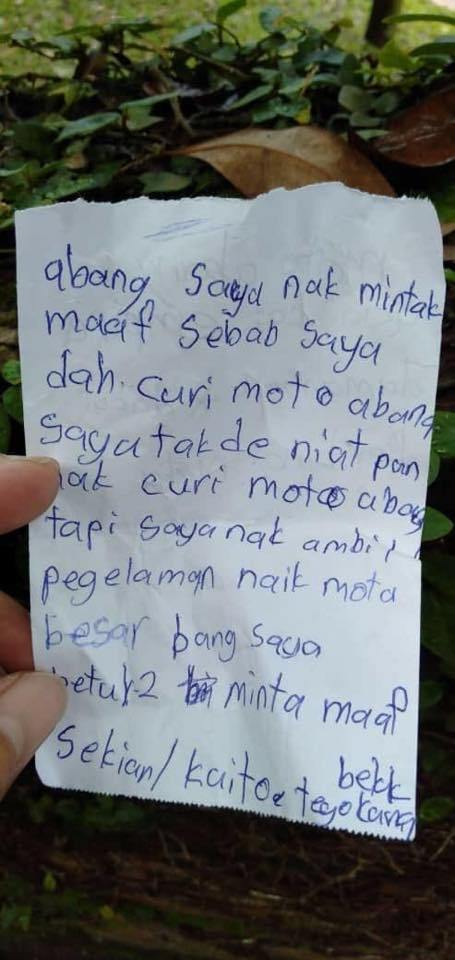 abang saya nak mintak
maaf sebab saya
dah. curi moto abang
saya takde niat pan
nak curi moto abang
tapi saya nak ambil
pegelaman naik mota
besar bang saya
betul-2 minta maaf
Sekian/ kaito
bekk